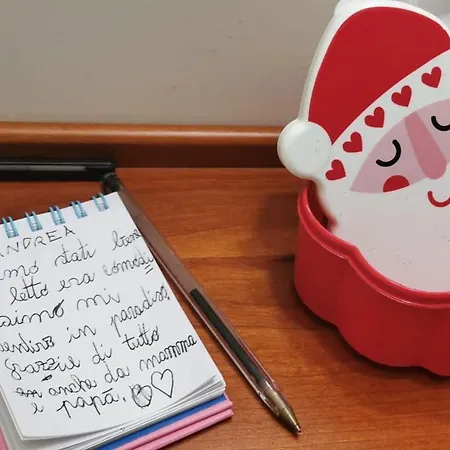 ANDREA
mo stati bene
letto era comodi
simo mi
sentivo in paradiso
grazie di tutto
anche da mamma
e papà.